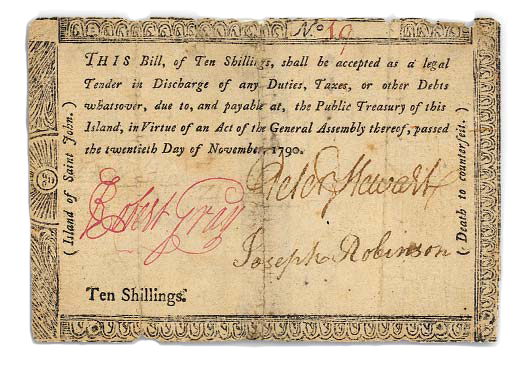 No. 19
THIS Bill, of Ten Shillings, shall be accepted as a legal
Tender in Discharge of any Duties, Taxes, or other Debts
whatsover, due to, and payable at, the Public Treasury of this
Island, in Virtue of an Act of the General Assembly thereof, passed
the twentieth Day of November, 1790.
(Island of Saint John.)
(Death to counterfeit.)
Peter Stewart
Robert Gray
Joseph Robinson
Ten Shillings.